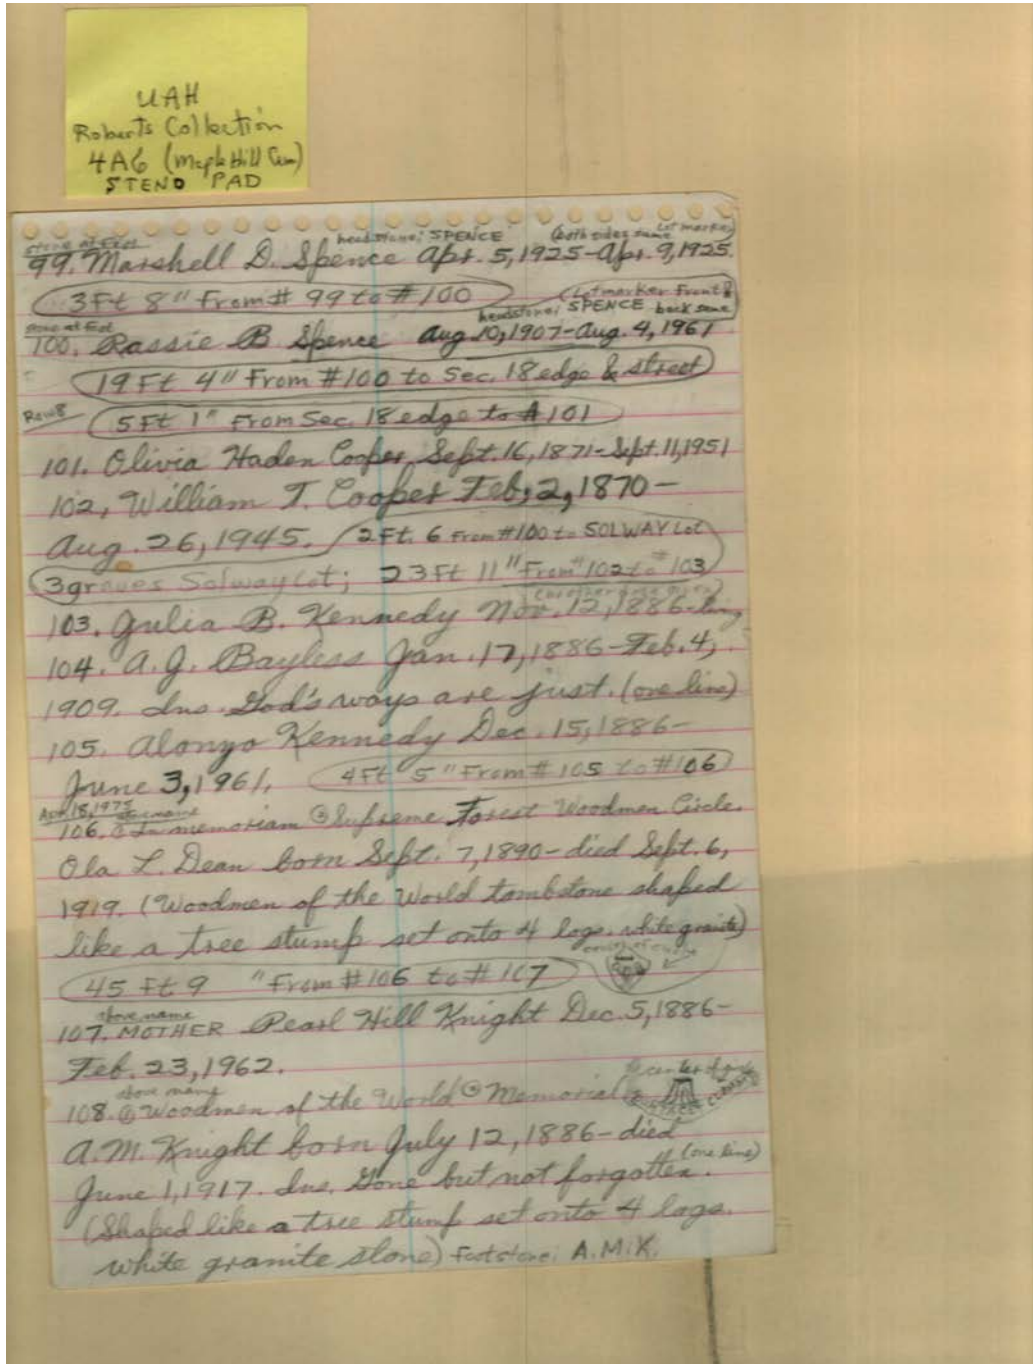 UAH
Roberts Collection
4A6 (Maple Hill Cem)
STENO PAD
stone at feet headstone: SPENCE (both sides same Lot marker
99. Marshell D. Spence Apr. 5, 1925-Apr. 9, 1925.
3 Ft 8" From # 99 to # 100 (Lotmarker Front &
headstone: SPENCE back same
stone at feet
100. Rassie B Spence Aug. 10, 1907-Aug. 4, 1961
19 Ft 4" From #100 to Sec. 18 edge & street
Row 8 5 Ft 1" From Sec. 18 edge to # 101
101. Olivia Haden Cooper, Sept. 16, 1871-Sept. 11, 1951
102, William T. Cooper Feb, 2, 1870-
Aug. 26, 1945. 2 Ft. 6 From #100 to SOLWAY Lot
3 graves Solway Lot; 23 Ft 11" From #102 to #103
103. Julia B. Kennedy Nov. 12, 1886-
104. A. J. Bayless Jan. 17, 1886-Feb. 4,
1909. Ins. God's ways are just. (one line)
105. Alonzo Kennedy Dec. 15, 1886-
June 3, 1961. 4 Ft 5" From # 105 to #106
Apr. 18, 1975 above name
106. @ In memoriam @ Supreme Forest Woodmen Circle.
Ola L. Dean born Sept. 7, 1890-died Sept. 6,
1919. (Woodmen of the World tombstone shaped
like a tree stump set onto 4 logs. white granite)
45 Ft 9 " From #106 to # 107
above name
107. MOTHER Pearl Hill Knight Dec. 5, 1886-
Feb. 23, 1962.
above name @ center of
108. @ Woodmen of the World @ Memorial
A. M. Knight born July 12, 1886-died
June 1, 1917. Ins. Gone but not forgotten. (one line)
(Shaped like a tree stump set onto 4 logs.
white granite stone) Footstone: A.M.K.